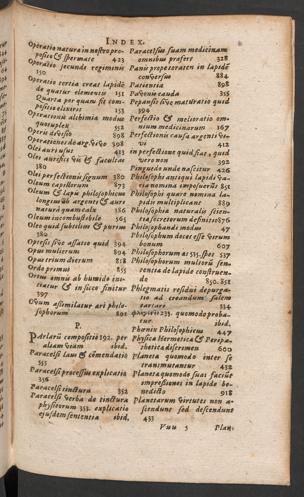 INDEX.
Operatio natura in nostro pro-
posito & spermate 423
Operatio secunde regiminis
150
Operatio tertia creat lapidē
de quatuor elementis 151
Quarta per quam fit com-
positio elixiris 153
Operationis alchimia modus
quotuplex 552
Operis divisio 898
Operationes de argēto vivo 398
Oleū auri usus 413
Oleū aurificis vis & facultas
380
Olei perfectionis signum 380
Oleum capitellorum 873
Oleum & lapis philosophicus
longius ab argento & auro
naturæ quam talis 386
Oleum incombustibile 365
Oleo quid subtilius & purius
382
Opus mulierum 894
Opus trium dierum 818
Ordo primus 855
Ortus omnis ab humido ini-
tiatur & in sicco finitur
397
Ovum assimilatur ari philo-
sophorum 892
P.
Parlarū compositio 192. per
aliam viam ibid.
Paracelsi laus & cōmendatio
355
Paracelsi processus explicatio
356
Paracelsi tinctura 352
Paracelsi verba de tinctura
physicorum 353. explicatio
ejusdem sententia ibid.
Paracelsus suam medicinam
omnibus prafert 328
Panis prope toraten in lapidē
conversus 884
Patientia 898
Pavonis cauda 355
394
Perfectio & melioratio om-
nium medicinarum 367
Perfectionis causa argenti vi-
vi 412
in perfectione quid sūt, quid
vero non 392
Pinguedo unde nascitur 426
Philosophi antiqui lapidē va-
Philosophi quare nomina la-
pidis multiplicant 889
Philosophia naturalis sisten-
tia secretorum definitio 876
Philosophandi modus 47
Philosophum decet esse virum
bonum 607
Philosophorum as 535. spes 537
Philosophorum multorū sen-
tentia de lapide construen-
do 850. 851
Phlegmatis residui depurga-
tio ad creandum salem
tartare 334
quomodo proba-
tur. ibid.
Phœnix Philosophicus 447
Physica Hermetica & Peripa-
thetica discrimen 660
Planeta quomodo inter se
transmutantur 432
Planeta quomodo suas faciūt
impressiones in lapide be-
nedicto 918
Planetarum virtutes non a-
scendunt sed descendunt
433
Vuu 3 Plan-